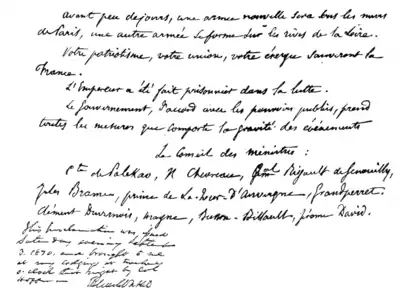 avant peu de jours, une armée nouvelle sera sous les murs
de Paris, une autre armée se forme sur les rives de la Loire.
Votre patriotisme, votre union, votre énergie sauveront la
France.
L'Empereur a été fait prisonnier dans la lutte.
Le Gouvernement, d'accord avec les pouvoirs publics, prend
toutes les mesures que comporte la gravité des événements
Le Conseil des ministres :
Cte de Palikao, H Chevreau, Rigault de Genouilly,
Jules Brame, prince de La Tour-D'auvergne, Grandperret
Clément Duvernois, Magne, Busson-Billault, Jérome David.
This proclamation was
Saturday evening
3. 1870, and brought to me
at my lodging in
o'clock this night by Col